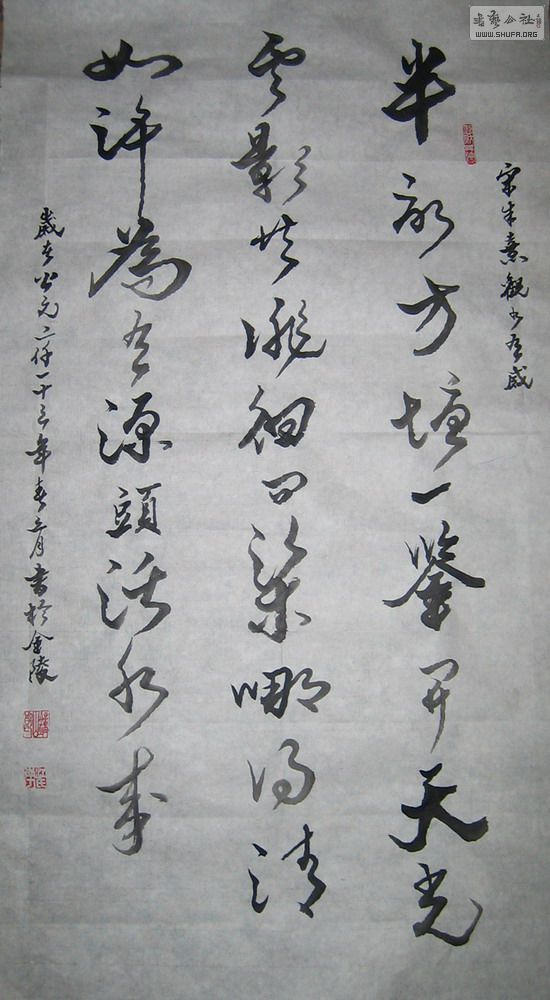 書藝公社
WWW.SHUFA.ORG
宋朱熹觀書有感
半畝方塘一鑒開天光
雲影共徘徊問渠哪得清
如許為有源頭活水來
歲在公元二仟一十三年春三月書於金陵